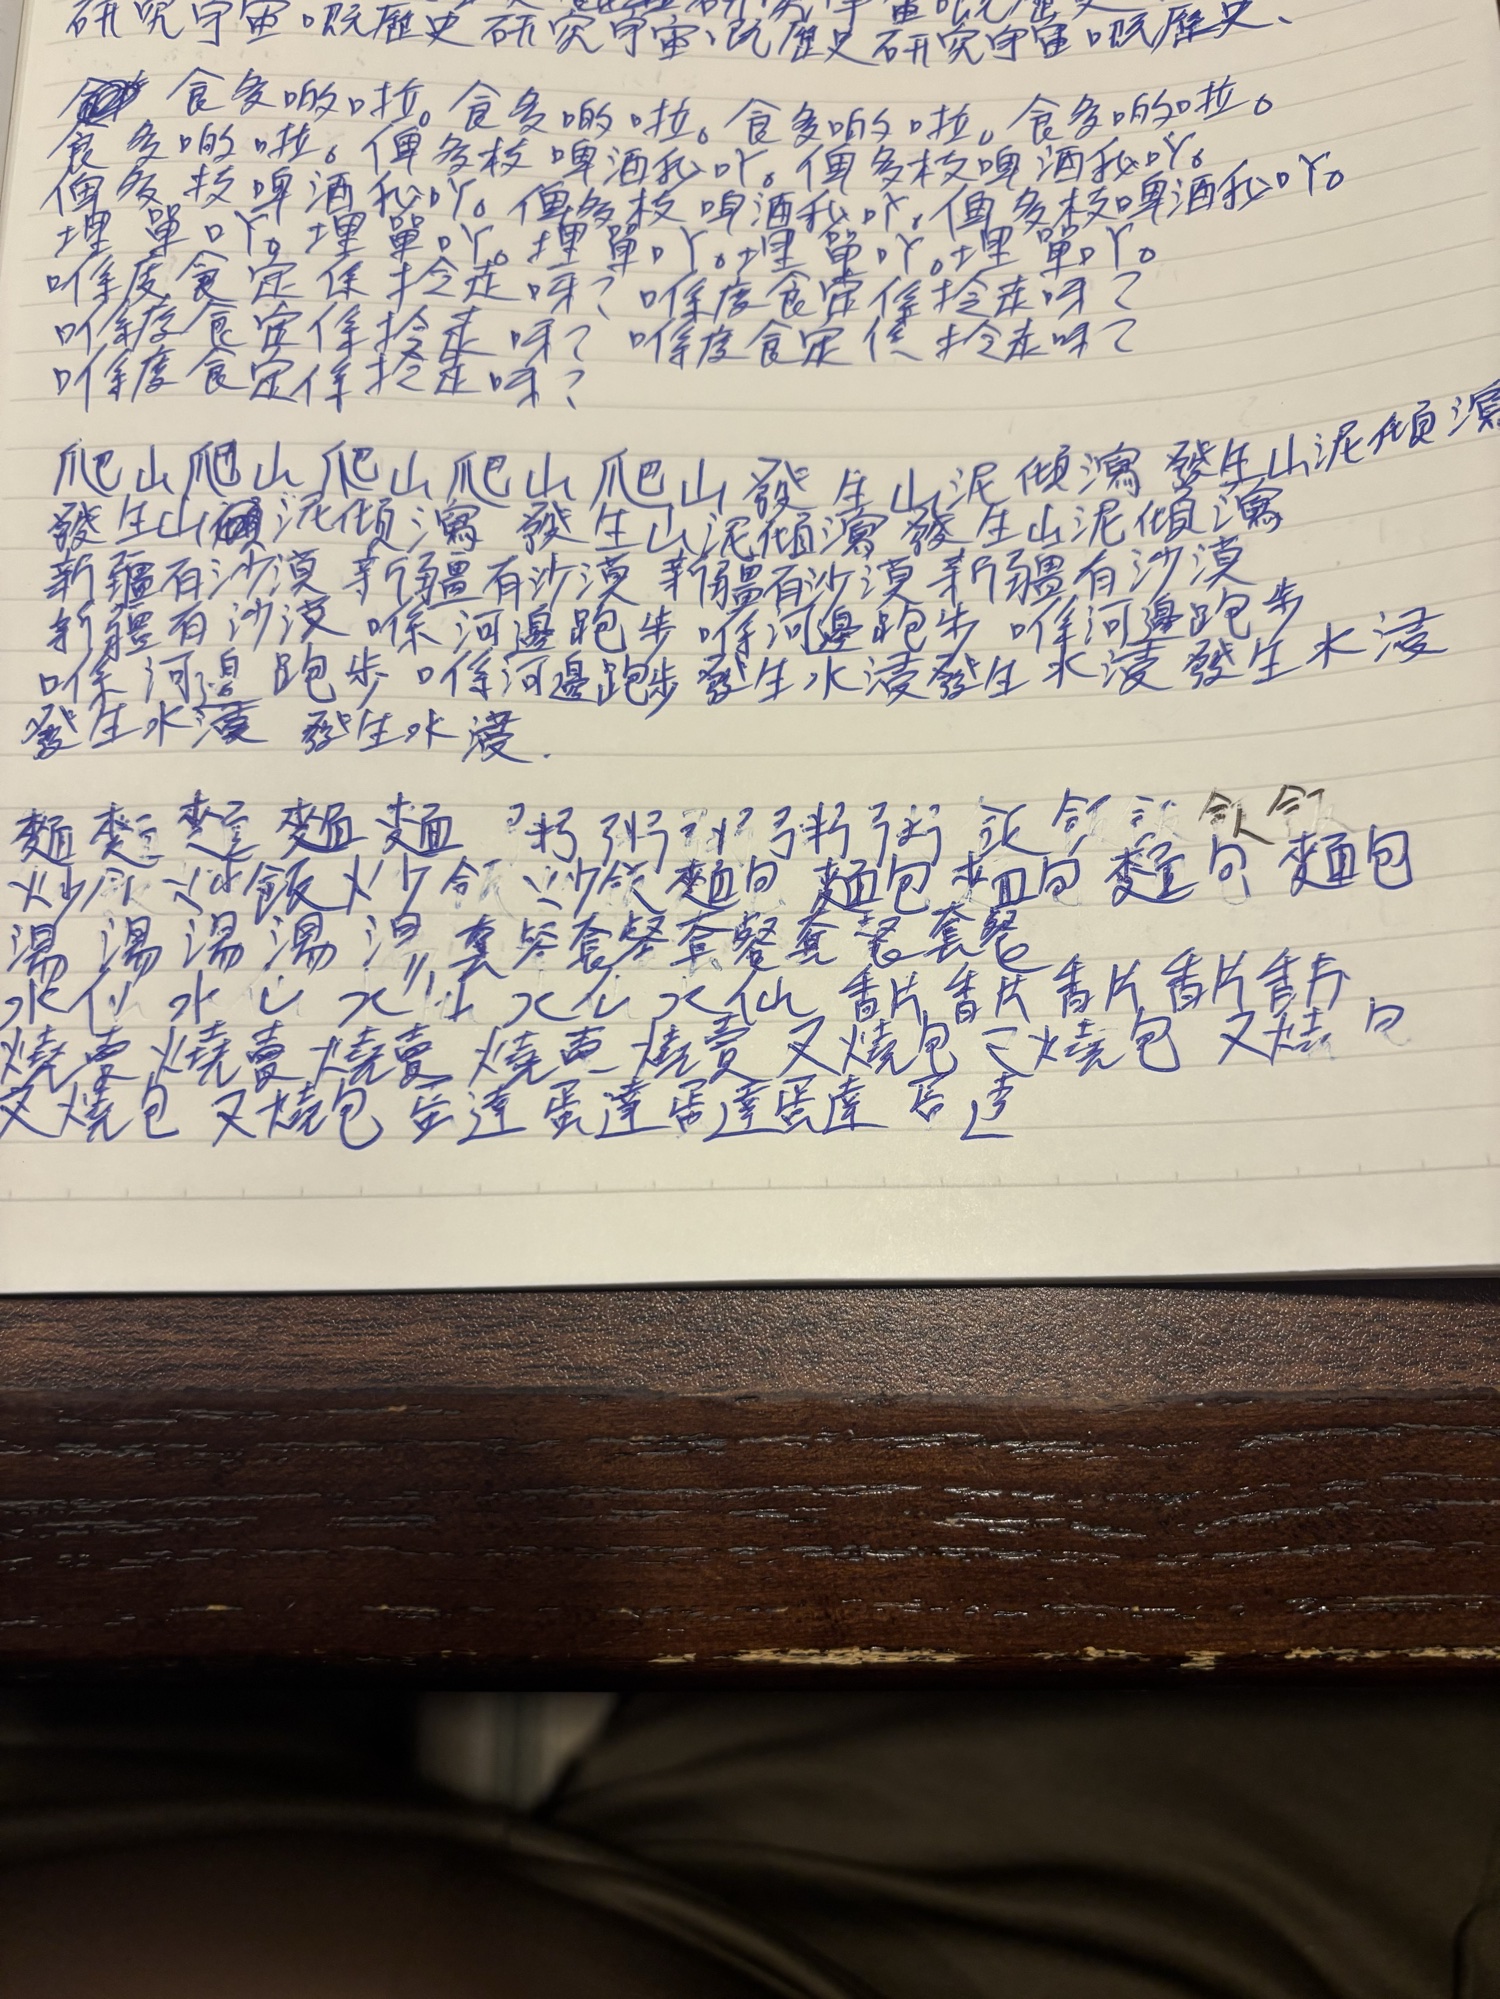 研究宇宙嘅歷史 研究宇宙嘅歷史 研究宇宙嘅歷史、
食多啲啦。食多啲啦。食多啲啦。食多啲啦。
食多啲啦。俾多枝啤酒我吖。俾多枝啤酒我吖。
俾多枝啤酒我吖。俾多枝啤酒我吖。俾多枝啤酒我吖。
埋單吖。埋單吖。埋單吖。埋單吖。埋單吖。
喺度食定係拎走呀？喺度食定係拎走呀？
喺度食定係拎走呀？喺度食定係拎走呀？
喺度食定係拎走呀？
爬山爬山爬山爬山爬山發生山泥傾瀉發生山泥傾瀉
發生山泥傾瀉 發生山泥傾瀉發生山泥傾瀉
新疆有沙漠 新疆有沙漠 新疆有沙漠 新疆有沙漠
新疆有沙漠 喺河邊跑步 喺河邊跑步 喺河邊跑步
喺河邊跑步 喺河邊跑步發生水浸發生水浸發生水浸
發生水浸 發生水浸.
麵麵麵麵麵 粥粥粥粥粥飯飯飯飯飯
炒飯炒飯炒飯炒飯麵包麵包麵包麵包麵包
湯湯湯湯湯套餐套餐套餐套餐套餐
水仙水仙水仙水仙水仙香片香片香片香片香片
燒賣燒賣燒賣燒賣燒賣叉燒包叉燒包叉燒包
叉燒包叉燒包蛋達蛋達蛋達蛋達蛋達